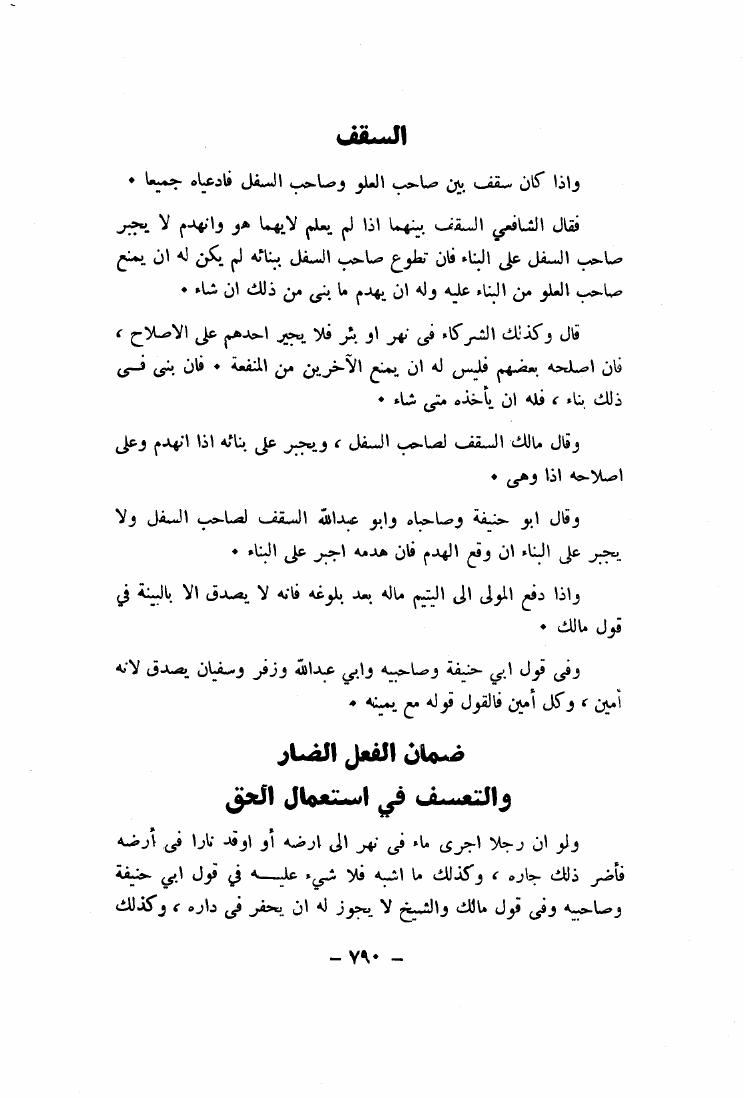 السقف
واذا كان سقف بين صاحب العلو وصاحب السفل فادعياه جميعا •
فقال الشافعي السقف بينهما اذا لم يعلم لايهما هو وانهدم لا يجبر
صاحب السفل على البناء فان تطوع صاحب السفل ببنائه لم يكن له ان يمنع
صاحب العلو من البناء عليه وله ان يهدم ما بنى من ذلك ان شاء •
قال وكذلك الشركاء فى نهر او بئر فلا يجبر احدهم على الاصلاح ،
فان اصلحه بعضهم فليس له ان يمنع الآخرين من المنفعة • فان بنى فــى
ذلك بناء ، فله ان يأخذه متى شاء •
وقال مالك السقف لصاحب السفل ، ويجبر على بنائه اذا انهدم وعلى
اصلاحه اذا وهى •
وقال ابو حنيفة وصاحباه وابو عبدالله السقف لصاحب السفل ولا
يجبر على البناء ان وقع الهدم فان هدمه اجبر على البناء •
واذا دفع المولى الى اليتيم ماله بعد بلوغه فانه لا يصدق الا بالبينة في
قول مالك •
وفى قول ابي حنيفة وصاحبيه وابي عبدالله وزفر وسفيان يصدق لانه
أمين ، وكل أمين فالقول قوله مع يمينه •
ضمان الفعل الضار
والتعسف في استعمال الحق
ولو ان رجلا اجرى ماء فى نهر الى ارضه أو اوقد نارا فى أرضه
فأضر ذلك جاره ، وكذلك ما اشبه فلا شيء عليــه في قول ابي حنيفة
وصاحبيه وفى قول مالك والشيخ لا يجوز له ان يحفر فى داره ، وكذلك
– ٧٩٠ –